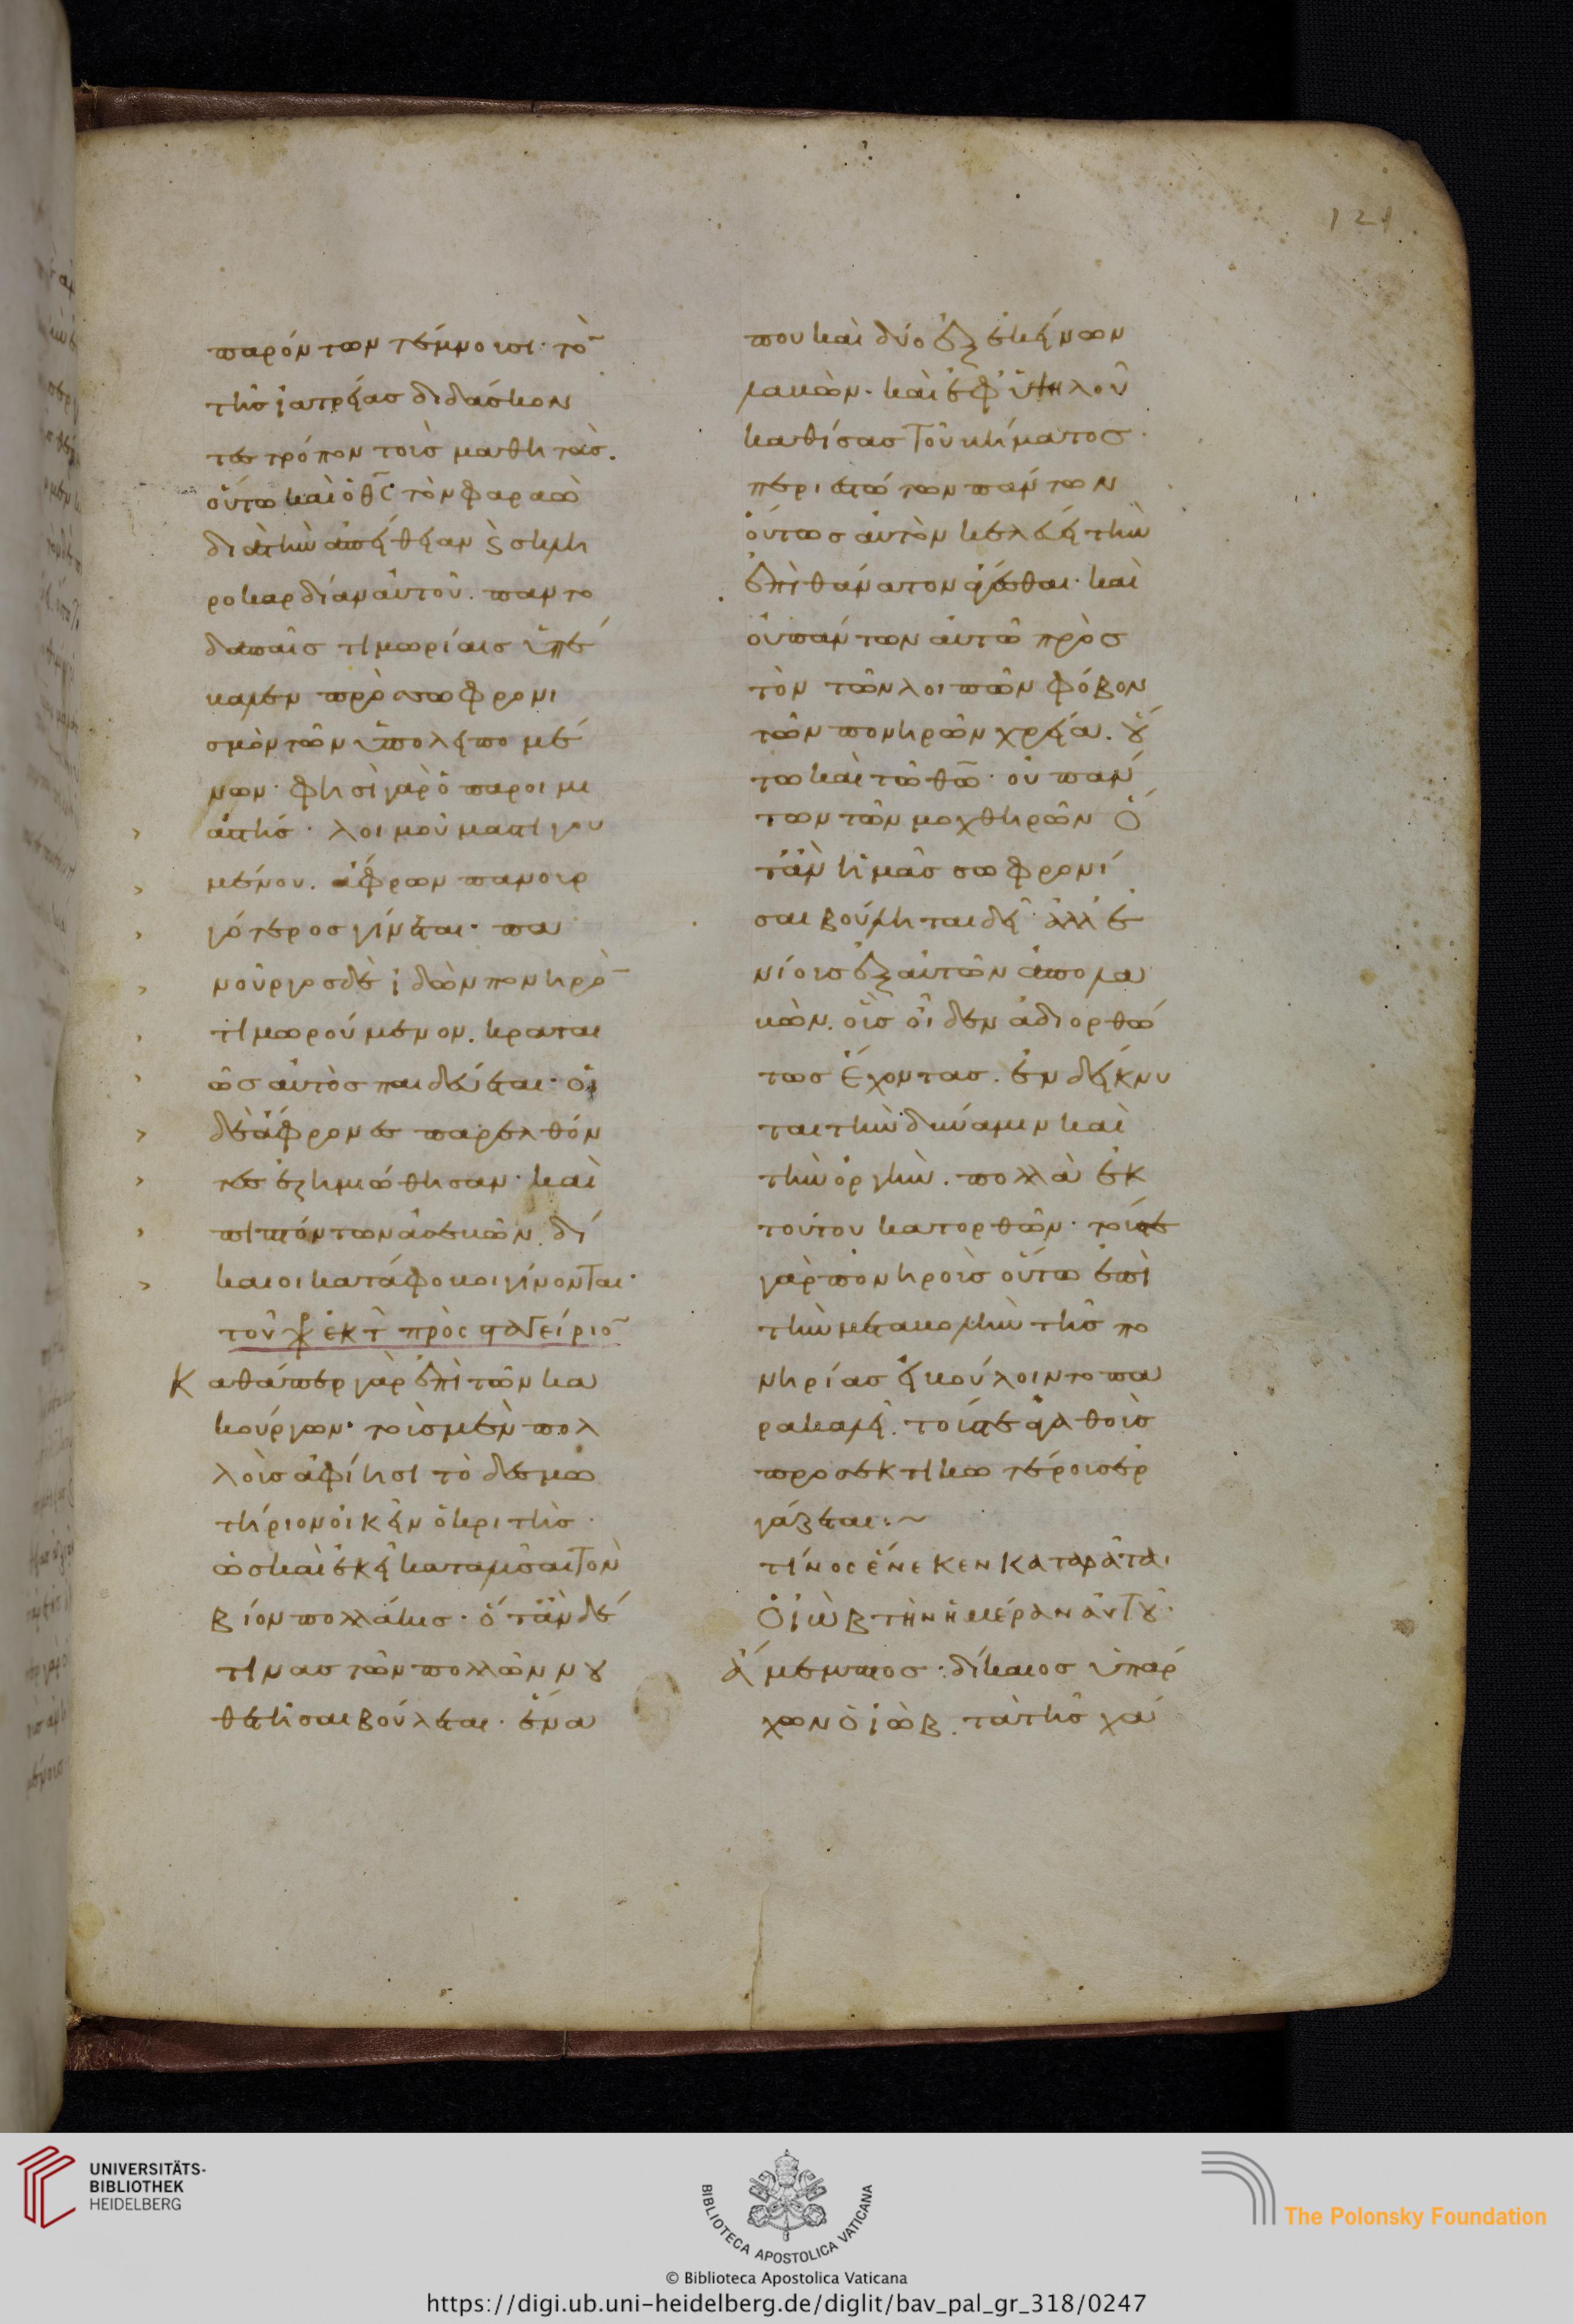 121
παρόντων τέμνουσι· τὸ̄
τῆς ἰατρείας διδάσκον
τες τρόπον τοὺς μαθητάς.
οὕτω καὶ ὁ θ̄ς τὸν φαραὼ
διὰ τὴν ἀπείθειαν ϗ σκλη
ροκαρδίαν αὐτοῦ. παντο
δαπαῖς τιμωρίαις ὑπέ
βαλεν πρὸς σωφρονι
σμὸν τῶν ὑπολειπομέ
νων· φησὶ γὰρ ὁ παροιμι
αστής· λοιμοῦ μαστιγου
μένου. ἄφρων πανουρ
γότερος γίνεται· πα
νοῦργος δὲ ἰδὼν πονηρὸ̄
τιμωρούμενον. κραται
ῶς αὐτὸς παιδεύεται· οἱ
δὲ ἄφρονες παρελθόν
τες ἐζημιώθησαν· καὶ
πιπτόντων ἀσεβῶν. δί
καιοι κατάφοβοι γίνονται·
τοῦ χρ ἐκ τ πρὸς φαλγείριο̄
Καθάπερ γὰρ ἐπὶ τῶν κα
κούργων· τοὺς μὲν πολ
λοὺς ἀφίησι τὸ δεσμω
τήριον οἰκεῖν ὁ κριτής·
ὡς καὶ ἐκεῖ καταλῦσαι τὸν
βίον πολλάκις· ὅταν δέ
τινας τῶν πολλῶν νου
θετῆσαι βούλεται· ἕνα
που καὶ δύο ἐξ ἐκείνων
λαβών· καὶ ἐφ' ὑψηλοῦ
καθίσας τοῦ βήματος·
περιεστώτων πάντων
οὕτως αὐτὸν κελεύει τὴν
ἐπὶ θάνατον ἄγεσθαι· καὶ
οὐ πάντων αὐτῶ πρὸς
τὸν τῶν λοιπῶν φόβον
τῶν πονηρῶν χρεία. οὕ
τω καὶ τῶ θ̄ω· οὐ πάν
των τῶν μοχθηρῶν ὅ
ταν ἡμᾶς σωφρονί
σαι βούληται δεῖ· ἀλλ' ἐ
νίους ἐξ αὐτῶν ἀπολα
βών. οὓς οἶδεν ἀδιορθώ
τως ἔχοντας. ἐνδείκνυ
ται τὴν δύναμιν καὶ
τὴν ὀργήν. πολλὰ ἐκ
τούτου κατορθῶν· τούς τε
γὰρ πονηροὺς οὕτω ἐπὶ
τὴν μεταβολὴν τῆς πο
νηρίας εἰ βούλοιντο πα
ρακαλεῖ. τούς τε ἀγαθοὺς
προσεκτικωτέρους ἐρ
γάζεται:~
τίνος ἕνεκεν καταρᾶται
ὁ ἰὼβ τὴν ἡμέραν αὐτοῦ·
Ἄμεμπτος· δίκαιος ὑπάρ
χων ὁ ἰώβ. τὰ τῆς χά
UNIVERSITÄTS-
BIBLIOTHEK
HEIDELBERG
BIBLIOTECA APOSTOLICA VATICANA
The Polonsky Foundation
© Biblioteca Apostolica Vaticana
https://digi.ub.uni-heidelberg.de/diglit/bav_pal_gr_318/0247